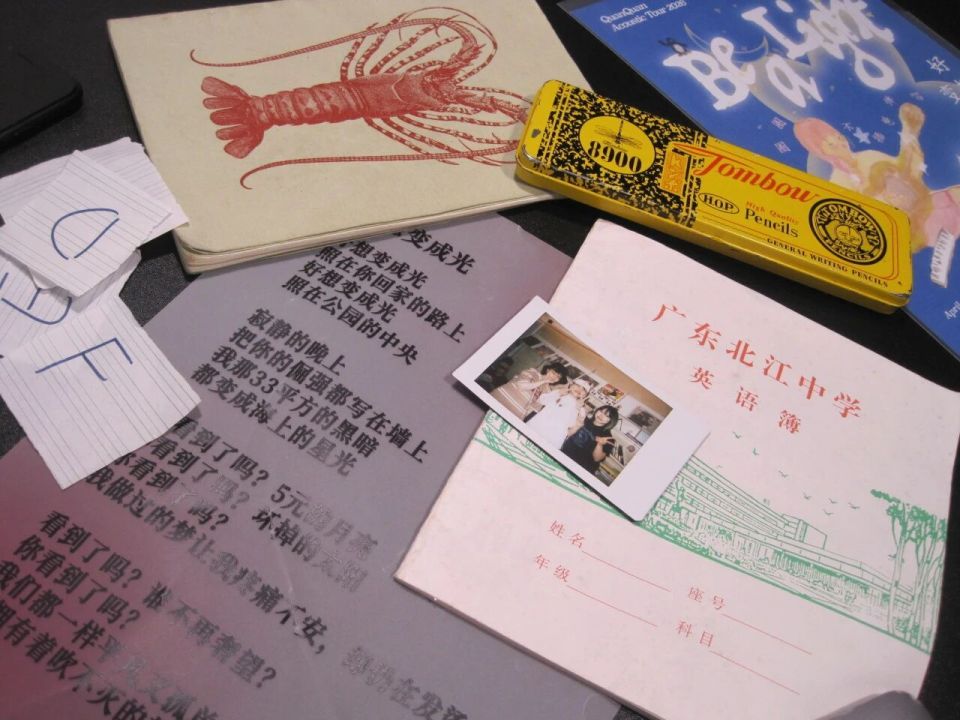 QuanQuan
Acoustic Tour 2018
Be
a
Light
8900
Tombow
HOP
High Quality
Pencils
GENERAL WRITING PENCILS
TOMBOW
PENCILS
广东北江中学
英语簿
姓名
座号
年级
科目
变成光
想变成光
照在你回家的路上
好想变成光
照在公园的中央
寂静的晚上
把你的倔强都写在墙上
我那33平方的黑暗
都变成海上的星光
看到了吗？5元的月亮
看到了吗？
你看到了吗？
我做过的梦让我疼痛不安，
看到了吗？谁不再奢望？
你看到了吗？
我们都一样平凡又孤
拥有着吹不灭的
F